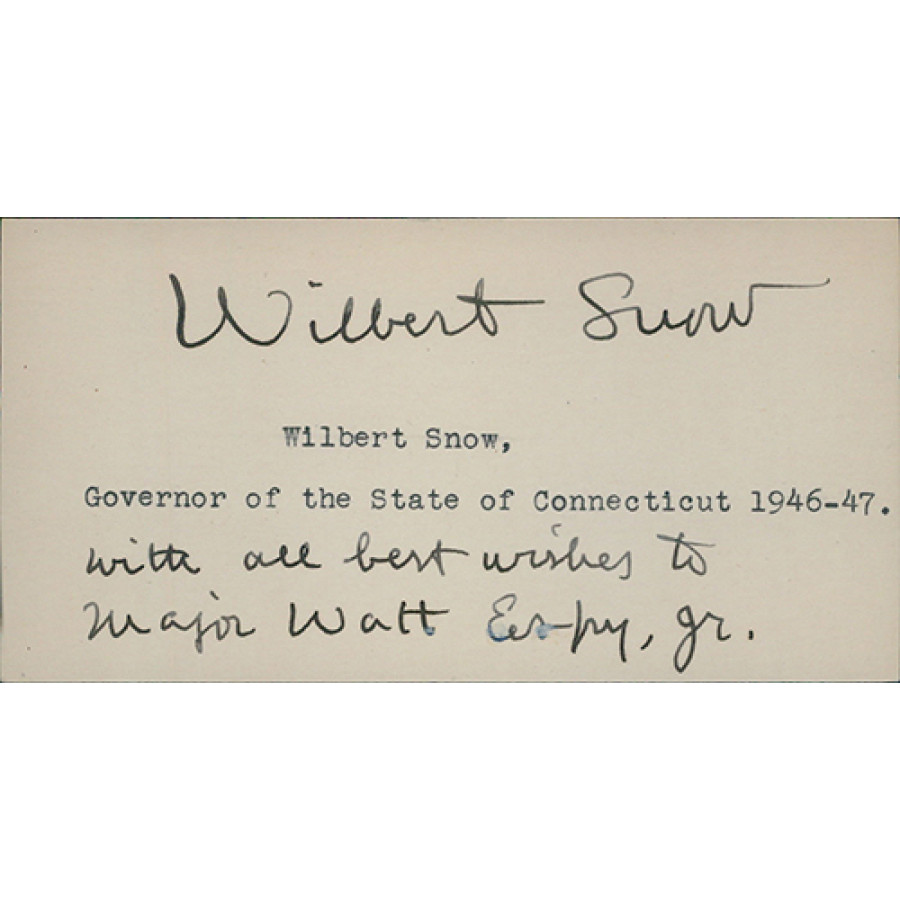 Wilbert Snow
Wilbert Snow,
Governor of the State of Connecticut 1946-47.
with all best wishes to
Major Watt Espy, Jr.